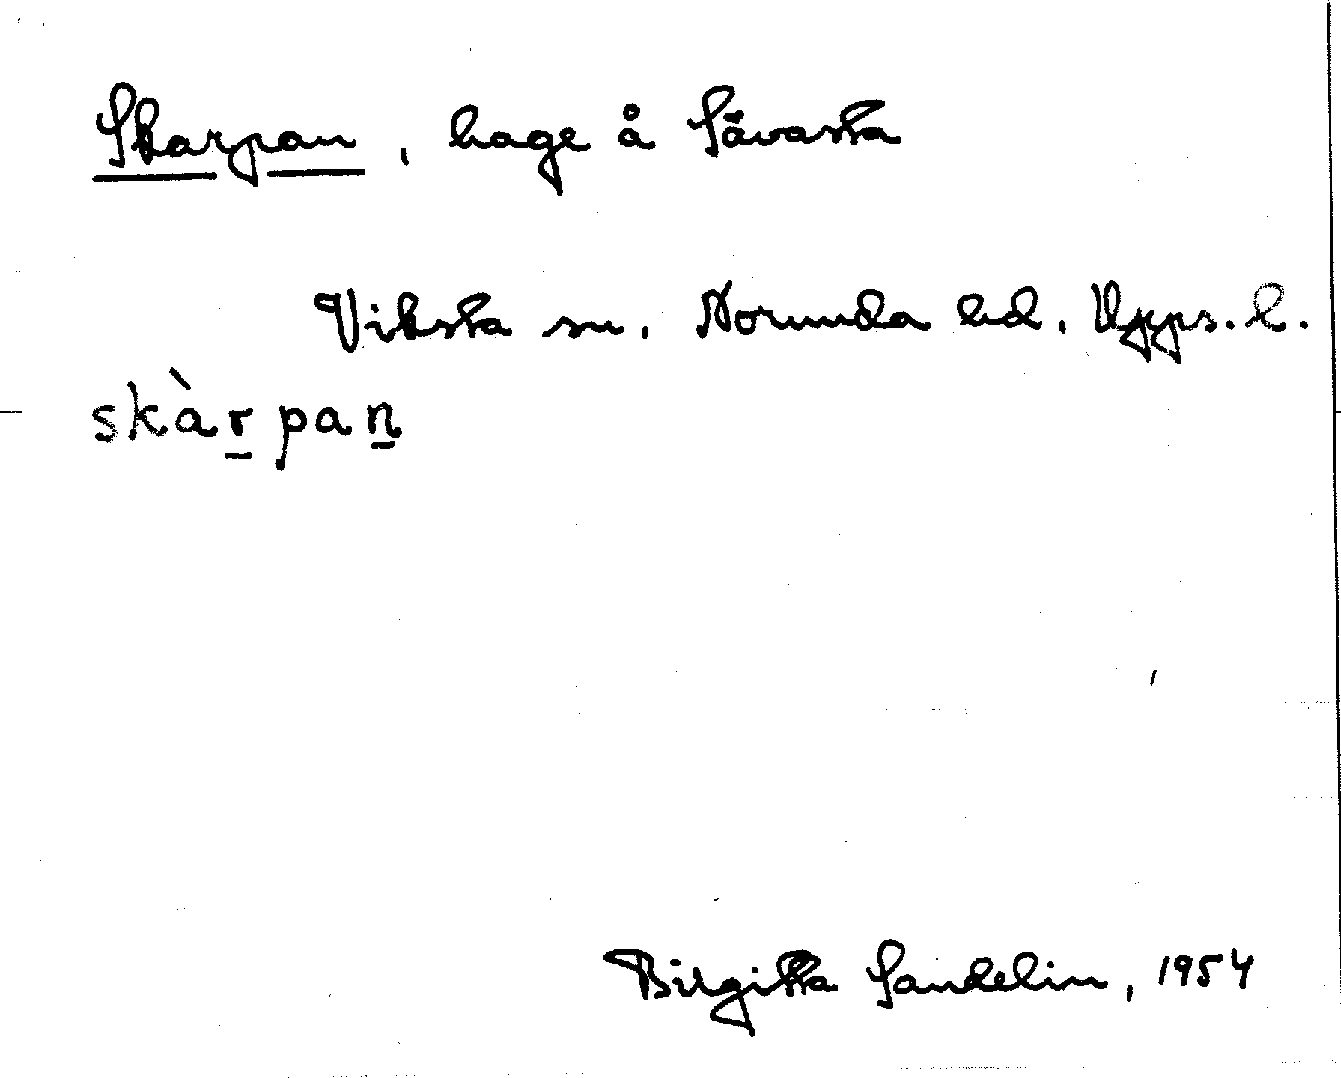 Skarpan, hage å Sävasta
Viksta sn. Norunda hd. Upps. l.
skàr̲pan̲
Birgitta Sandelin, 1954